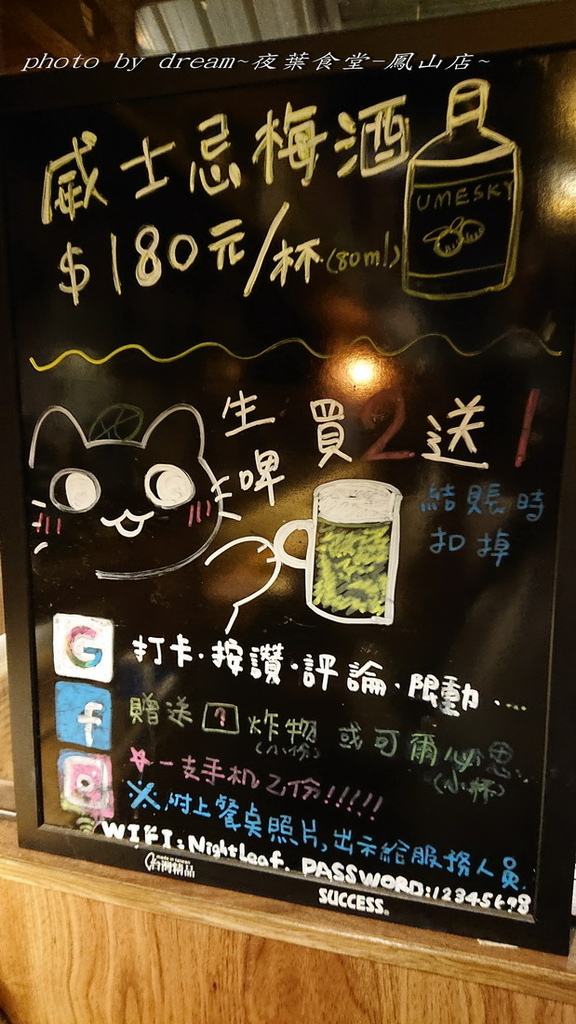 photo by dream~夜葉食堂-鳳山店~
威士忌梅酒
$180元/杯(80ml)
UMESKY
生啤 買2送1
結賬時
扣掉
G 打卡·按讚·評論·限動·...
f 贈送 ? 炸物(小份) 或可爾必思(小杯)
一支手机乙份!!!!!
※附上餐桌照片,出示給服務人員
WIFI:NightLeaf. PASSWORD:12345678
made in taiwan
台灣精品
SUCCESS®